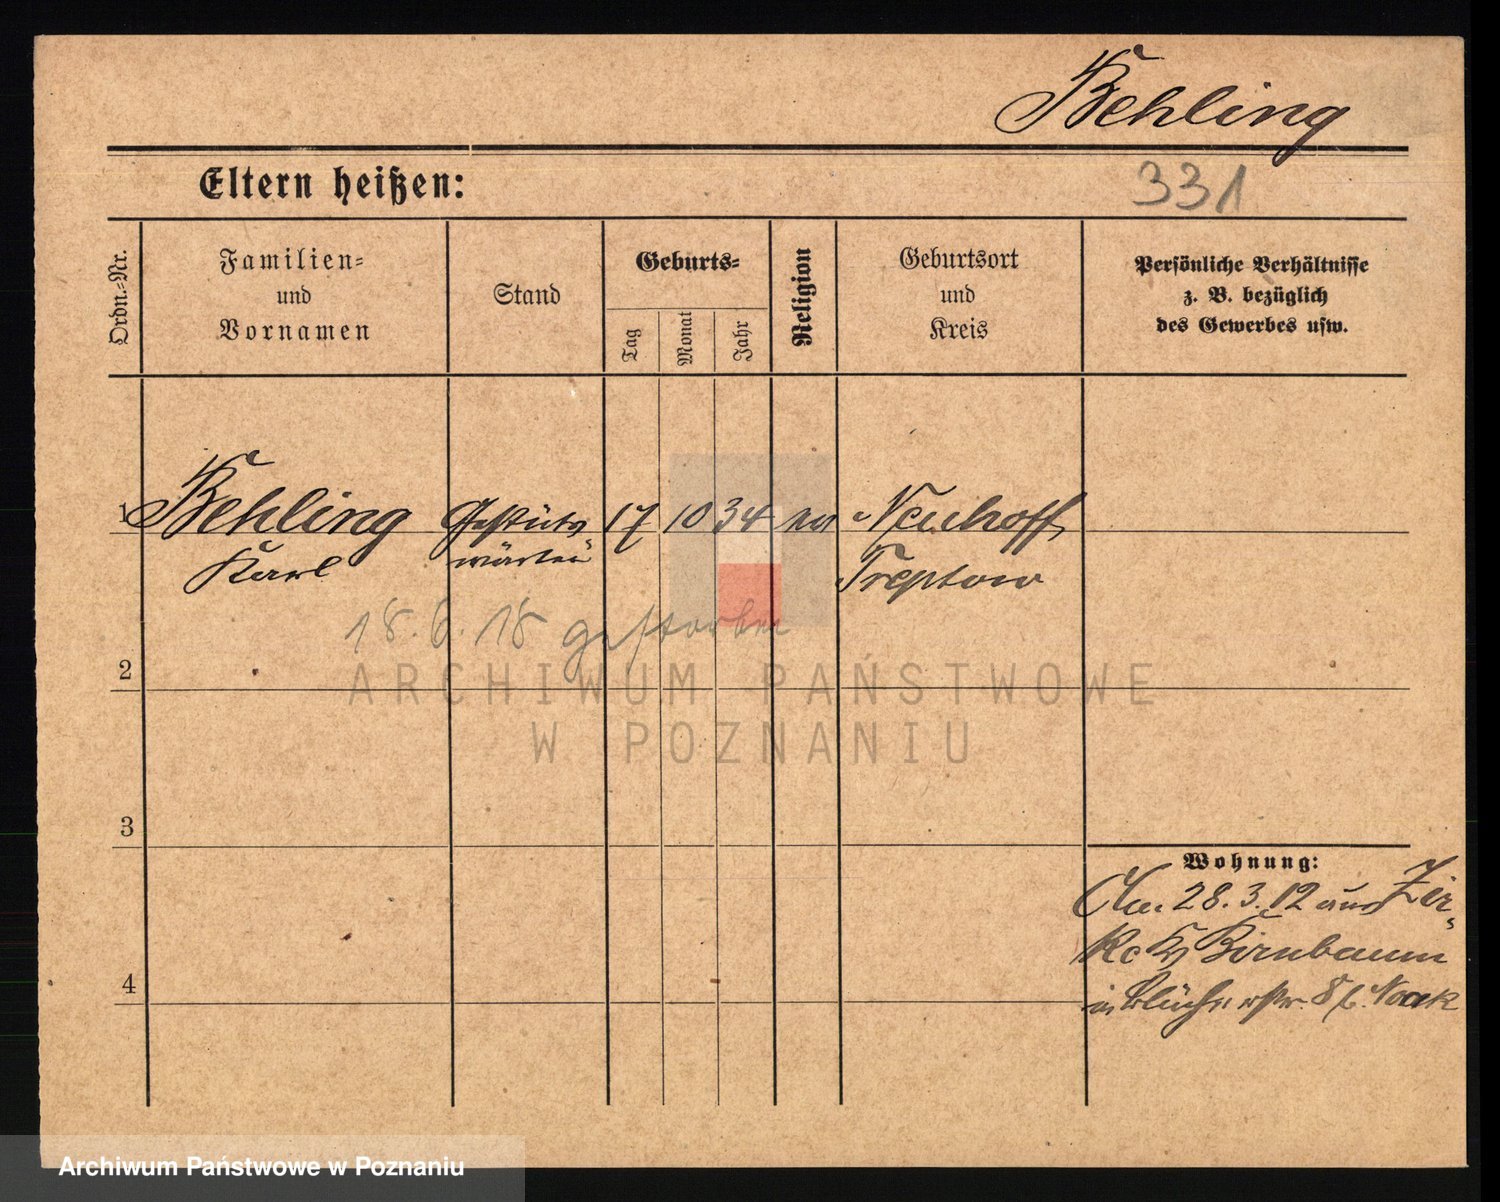 Behling
Eltern heißen:
331
Ordn.-Nr.
Familien-
und
Vornamen
Stand
Geburts-
Tag
Monat
Jahr
Religion
Geburtsort
und
Kreis
Persönliche Verhältnisse
z. B. bezüglich
des Gewerbes usw.
1 Behling Gestüts 17 10 34 Neuhoff
Karl wärter Treptow
18.6.18 gestorben
2
ARCHIWUM PAŃSTWOWE
W POZNANIU
3
Wohnung:
28.3.12 aus Zir-
ke Birnbaum
in Blücherstr. 8 b. Noack
4
Archiwum Państwowe w Poznaniu